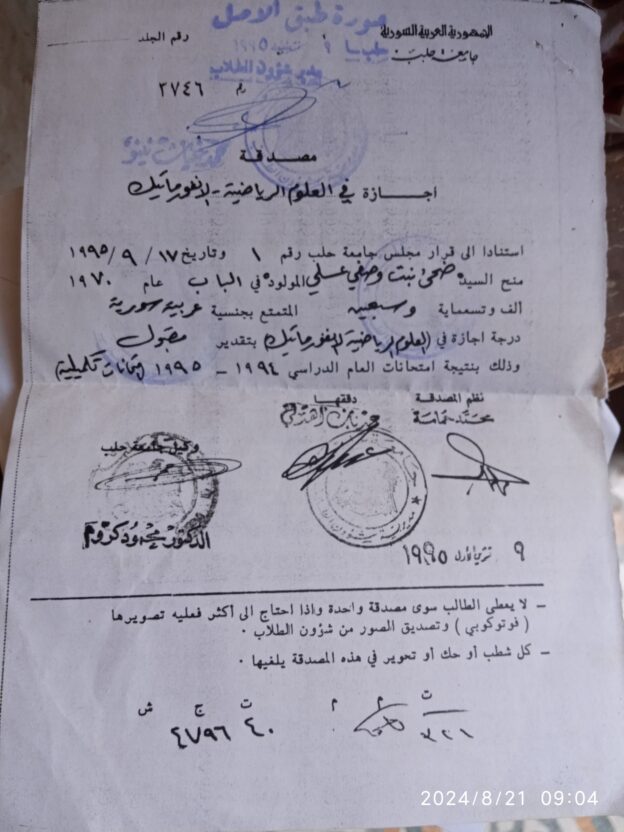 صورة طبق الأصل
الجمهورية العربية السورية
جامعة حلب
رقم الجلد
حلب في
١٩٩٥
مدير شؤون الطلاب
رقم ٢٧٤٦
مصدقة
اجازة في العلوم الرياضية - الانفورماتيك
استنادا الى قرار مجلس جامعة حلب رقم ١ وتاريخ ١٧ / ٩ / ١٩٩٥
منح السيدة ضحى بنت وصفي عسلي المولودة في الباب عام ١٩٧٠
الف وتسعماية وسبعين المتمتع بجنسية عربية سورية
درجة اجازة في (العلوم الرياضية الانفورماتيك) بتقدير مقبول
وذلك بنتيجة امتحانات العام الدراسي ١٩٩٤ - ١٩٩٥ (امتحانات تكميلية)
نظم المصدقة
دققها
وكيل جامعة حلب
الدكتور محمود كروم
٩ تشرين الأول ١٩٩٥
- لا يعطى الطالب سوى مصدقة واحدة واذا احتاج الى أكثر فعليه تصويرها
( فوتوكوبي ) وتصديق الصور من شؤون الطلاب ٠
- كل شطب أو حك أو تحوير في هذه المصدقة يلغيها ٠
ت م م
٣٢١
ت ج ش
٤٠ ٤٧٩٦
2024/8/21 09:04